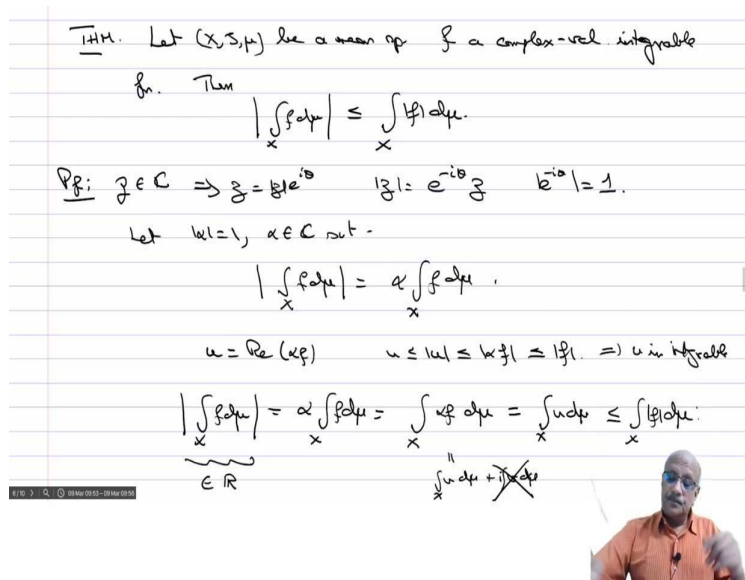 THM. Let (X,S,μ) be a meas sp f a complex-val. integrable
fn. Then
|∫_X f dμ| ≤ ∫_X |f| dμ.
Pf: z ∈ ℂ ⇒ z = |z|e^{iθ} |z| = e^{-iθ} z |e^{-iθ}| = 1.
Let |α|=1, α ∈ ℂ s.t.
|∫_X f dμ| = α ∫_X f dμ.
u = Re(αf) u ≤ |u| ≤ |αf| ≤ |f|. ⇒ u is integrable
|∫_X f dμ| = α ∫_X f dμ = ∫_X αf dμ = ∫_X u dμ ≤ ∫_X |f| dμ.
∈ ℝ ∫_X u dμ + i∫ v dμ
6/10 09 Mar 09:53 – 09 Mar 09:56